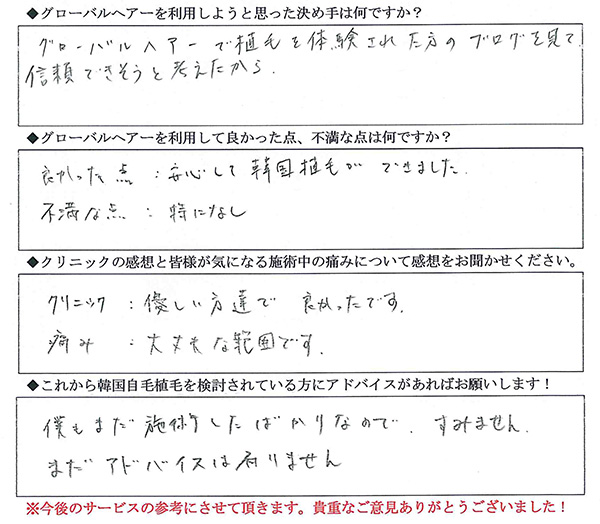 ◆グローバルヘアーを利用しようと思った決め手は何ですか?
グローバルヘアーで植毛を体験された方のブログを見て
信頼できそうと考えたから.
◆グローバルヘアーを利用して良かった点、不満な点は何ですか?
良かった点 : 安心して韓国植毛ができました.
不満な点 : 特になし
◆クリニックの感想と皆様が気になる施術中の痛みについて感想をお聞かせください。
クリニック : 優しい方達で 良かったです.
痛み : 大丈夫な範囲です.
◆これから韓国自毛植毛を検討されている方にアドバイスがあればお願いします!
僕もまだ施術したばかりなので. すみません.
まだアドバイスは有りません
※今後のサービスの参考にさせて頂きます。貴重なご意見ありがとうございました!